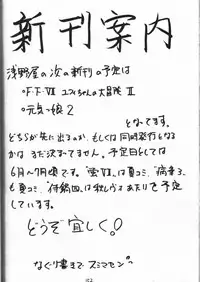 新刊案内
浅野屋の次の新刊の予定は
・F.F.VII ユフィちゃんの大冒険 II
・元気っ娘 2
となってます。
どちらが先に出るのか、もしくは同時発行となる
かはまだ決まってません。予定日としては
6月〜7月頃です。
も夏コミ、
あたりで予定
しています。
どうぞ宜しく!
なぐり書きでスミマセン。